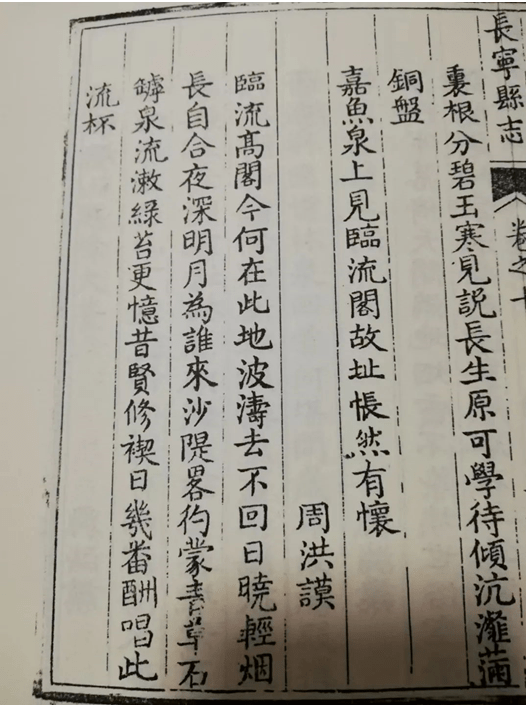 長寧縣志
卷之十
裏根分碧玉寒見説長生原可學待傾沆瀣滿
銅盤
嘉魚泉上見臨流閣故址悵然有懷
周洪謨
臨流髙閣今何在此地波濤去不回日晓輕烟
長自合夜深明月為誰來沙隄畧彴蒙青草石
罅泉流漱綠苔更憶昔賢修禊日幾番酬唱此
流杯